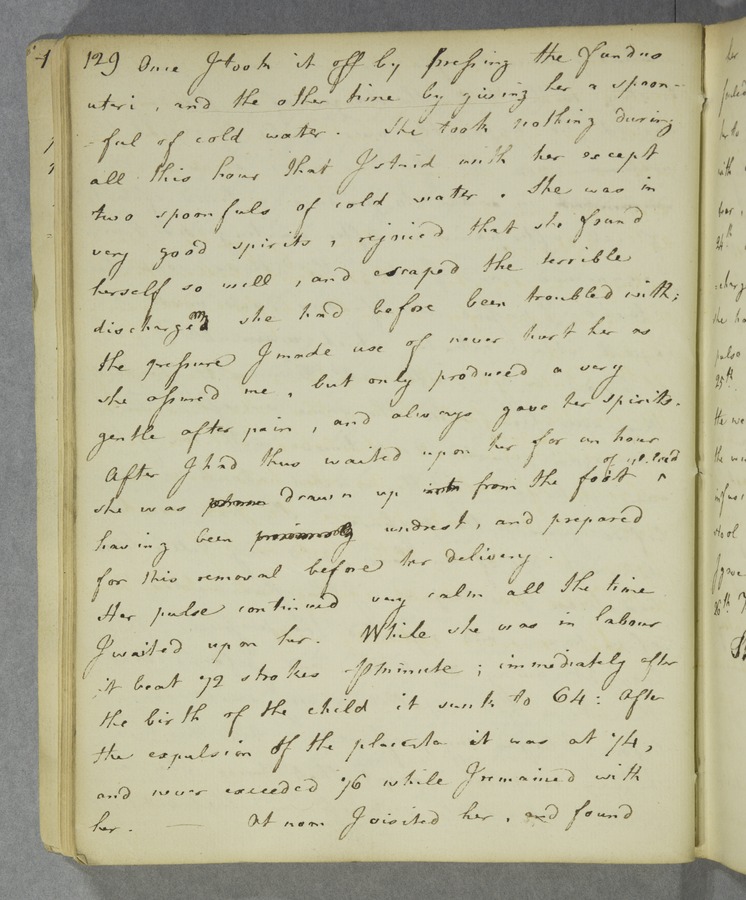 129 Once I took it off by pressing the fundus
uteri, and the other time by giving her a spoon-
-ful of cold water. She took nothing during
all this hour that I staid with her except
two spoonfuls of cold water. She was in
very good spirits, rejoiced that she found
herself so well, and escaped the terrible
discharge she had before been troubled with;
the pressure I made use of never hurt her as
she assured me, but only produced a very
gentle after pain, and always gave her spirits.
After I had thus waited upon her for an hour
she was drawn up from the foot of ye bed
having been undrest, and prepared
for this removal before her delivery.
Her pulse continued very calm all the time
I waited upon her. While she was in labour
it beat 72 strokes minute; immediately after
the birth of the child it sunk to 64: After
the expulsion of the placenta it was at 74,
and never exceeded 76 while I remained with
her. — At noon I visited her, and found